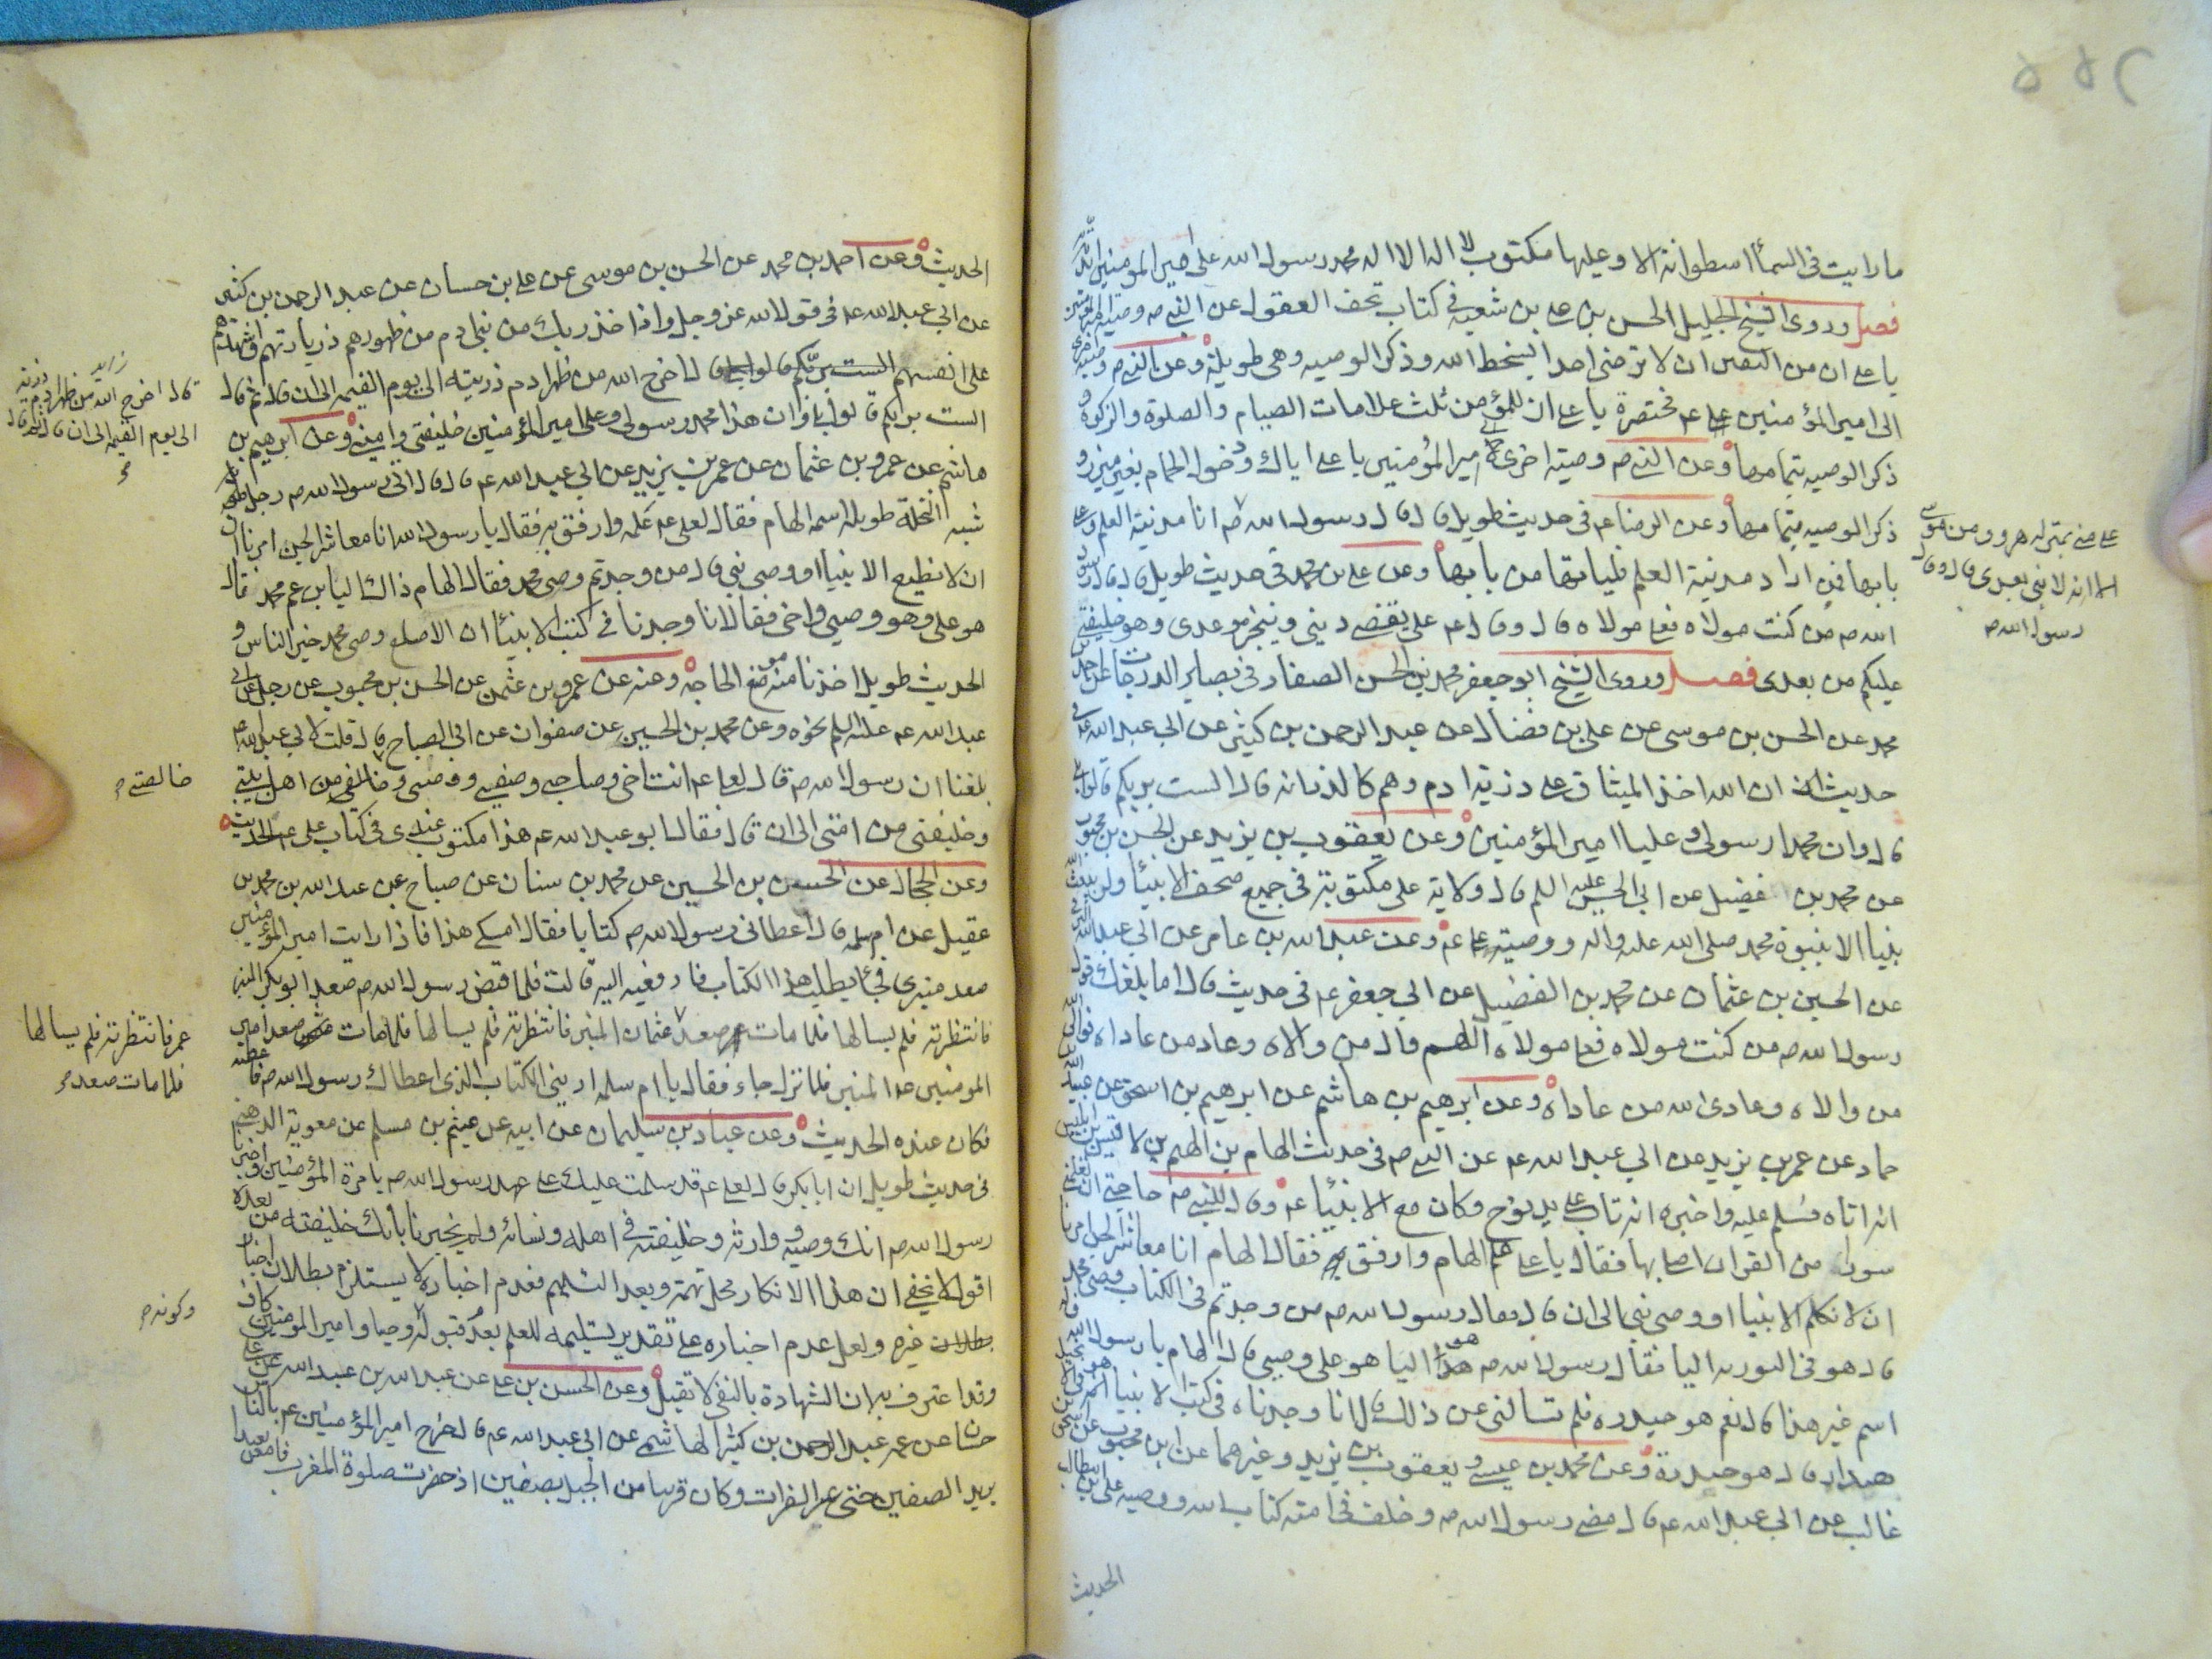 ما رايت فى السمأ اسطوانة الا وعليها مكتوب لا اله الا اله محمد رسول الله على امير المؤمنين
فصل وروى الشيخ الجليل الحسن بن على بن شعبه فى كتاب تحف العقول عن النبى ص وصيته
يا على ان من اليقين ان لا ترضى احدا بسخط الله وذكر الوصيه وهى طويلة وعن النبى ص وصيته اخرى
الى امير المؤمنين على عم مختصرة يا على ان للمؤمن ثلث علامات الصيام والصلوة والزكوة و
ذكر الوصيه بتمامها وعن النبى ص وصية اخرى الى امير المؤمنين يا على اياك ودخول الحمام بغير ميزر و
ذكر الوصيه بتمامها وعن الرضا عم فى حديث طويل قال قال رسول الله ص انا مدينة العلم وعلى
بابها فمن اراد مدينة العلم فلياتها من بابها وعن على بن محمد فى حديث طويل قال قال رسول
الله ص من كنت مولاه فعلى مولاه قال وقال عم على يقضى دينى وينجز موعدى وهو خليفتى
عليكم من بعدى فصل وروى الشيخ ابو جعفر محمد بن الحسن الصفار فى بصاير الدرجات عن احمد بن
محمد عن الحسن بن موسى عن على بن فضال عن عبد الرحمن بن كثير عن ابى عبد الله عم فى
حديث ان الله اخذ الميثاق على ذرية ادم وهم كالذر انه قال الست بربكم قالوا بلى
قال وان محمدا رسولى وعليا امير المؤمنين وعن يعقوب بن يزيد عن الحسن بن محبوب
عن محمد بن فضيل عن ابى الحسن عليه السلم قال ولاية على مكتوبة فى جميع صحف الانبيأ ولن يبعث الله
نبيا الا بنبوة محمد صلى الله عليه واله ووصية على عم وعن عبد الله بن عامر عن ابى عبد الله البرقى
عن الحسين بن عثمان عن محمد بن الفضيل عن ابى جعفر عم فى حديث قال اما بلغك قول
رسول الله ص من كنت مولاه فعلى مولاه اللهم وال من والاه وعاد من عاداه فوالى الله
من والاه وعادى الله من عاداه وعن ابرهيم بن هاشم عن ابرهيم بن اسحق عن عبد الله بن
حماد عن عمر بن يزيد عن ابى عبد الله عم عن النبى ص فى حديث الهام بن الهيم بن لاقيس بن ابليس
انه اتاه فسلم عليه واخبره انه تاب على يد نوح وكان مع الانبيأ عم وقال للنبى ص حاجتى ان تعلمنى
سورا من القران اصلى بها فقال يا على علم الهام وارفق به فقال الهام انا معاشر الجن امرنا
ان لا نكلم الا نبيا او وصى نبى الى ان قال فقال رسول الله ص من وجدتم فى الكتاب وصى محمد
قال هو فى التوريه اليا فقال رسول الله ص هذا اليا هو على وصيى قال الهام يا رسول الله فله
اسم غير هذا قال نعم هو حيدره فلم تسالنى عن ذلك قال انا وجدناه فى كتب الانبيا انه فى الانجيل
هيدار قال هو حيدرة وعن محمد بن عيسى ويعقوب بن يزيد وغيرهما عن ابن محبوب عن اسحق بن
غالب عن ابى عبد الله عم قال مضى رسول الله ص وخلف فى امته كتاب الله ووصيه على بن ابيطالب
الحديث
على منى بمنزله هرون من موسى
الا انه لا نبى بعدى قال وقال
رسول الله ص
الحديث وعن احمد بن محمد عن الحسن بن موسى عن على بن حسان عن عبد الرحمن بن كثير
عن ابى عبد الله عم فى قول الله عز وجل واذ اخذ ربك من بنى ادم من ظهورهم ذرياتهم واشهدهم
على انفسهم الست بربكم قالوا بلى قال اخرج الله من ظهر ادم ذريته الى يوم القيمه الى ان قال ثم قال
الست بربكم قالوا بلى وان هذا محمد رسولى وعلى امير المؤمنين خليفتى وامينى وعن ابرهيم بن
هاشم عن عمرو بن عثمان عن عمر بن يزيد عن ابى عبد الله عم قال قال اتى رسول الله ص رجل طويل
شبه النخلة طويلة اسمه الهام فقال لعلى عم علمه وارفق به فقال يا رسول الله انا معاشر الجن امرنا
ان لا نطيع الا نبيا او وصى نبى قال من وجدتم وصى محمد فقال الهام ذاك اليا بن عم محمد قال
هو على وهو وصيى واخى فقال انا وجدنا فى كتب الانبيأ ان الاصلع وصى محمد خير الناس و
الحديث طويل اخذنا منه موضع الحاجه وعنه عن عمرو بن عثمن عن الحسن بن محبوب عن رجل عن ابى
عبد الله عم عليه السلم نحوه وعن محمد بن الحسين عن صفوان عن ابى الصباح قال قلت لابى عبد الله عم
بلغنا ان رسول الله ص قال لعلى عم انت اخى وصاحبى وصفيى ووصيى وخالصى من اهل بيتى
وخليفتى من امتى الى ان قال فقال ابو عبد الله عم هذا مكتوب عندى فى كتاب على عم الحديث
وعن الحجال عن الحسين بن الحسين عن محمد بن سنان عن صباح عن عبد الله بن محمد بن
عقيل عن ام سلمه قال اعطانى رسول الله ص كتابا فقال امسكى هذا فاذا رايت امير المؤمنين
صعد منبرى فجأ يطلب هذا الكتاب فادفعيه اليه قالت فلما قبض رسول الله ص صعد ابو بكر المنبر
فانتظرته فلم يسالها فلما مات صعد عثمان المنبر فانتظرته فلم يسالها فلما مات صعد امير
المومنين عم المنبر فلما نزل جاء فقال يا ام سلمه ارينى الكتاب الذى اعطاك رسول الله ص فاعطيته
فكان عنده الحديث وعن عباد بن سليمان عن ابيه عن عيثم بن مسلم عن معوية الدهنى
فى حديث طويل ان ابا بكر قال لعلى عم قد سلمت عليك على عهد رسول الله ص بامرة المؤمنين واخبرنا
رسول الله ص انك وصيه ووارثه وخليفته فى اهله ونسائه ولم يخبرنا بانك خليفته من بعده
اقول لا يخفى ان هذا الانكار محل تهمة وبعد التسليم فعدم اخباره لا يستلزم بطلان اخبار
غيره ولعل عدم اخباره على تقدير تسليمه للعلم بعدم قبوله وصيا وامير المومنين كاف
وقد اعترف به ان الشهادة بالنفى لا تقبل وعن الحسن بن على عن عبد الله بن عبد الله عن على بن
حسان عن عمه عبد الرحمن بن كثير الهاشمى عن ابى عبد الله عم قال خرج امير المؤمنين عم بالناس
يريد الصفين حتى عبر الفرات وكان قريبا من الجبل بصفين اذ حضرت صلوة المغرب فامعن بعيدا
قال اخرج الله من ظهر ادم ذريته
الى يوم القيمه الى ان قال ثم قال
خالصتى
عمر فانتظرته فلم يسالها
فلما مات صعد
وكونه